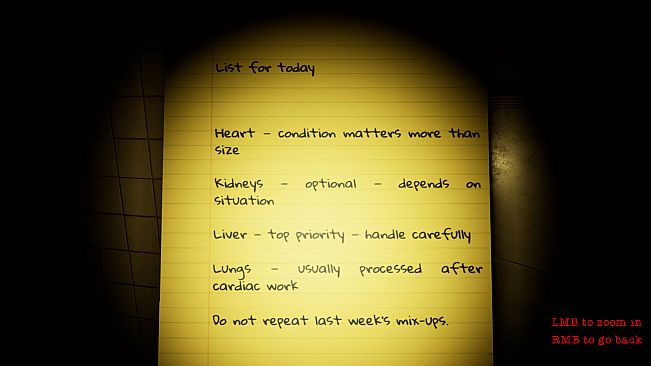 List for today
Heart - condition matters more than
size
Kidneys - optional - depends on
situation
Liver - top priority - handle carefully
Lungs - usually processed after
cardiac work
Do not repeat last week's mix-ups.
LMB to zoom in
RMB to go back